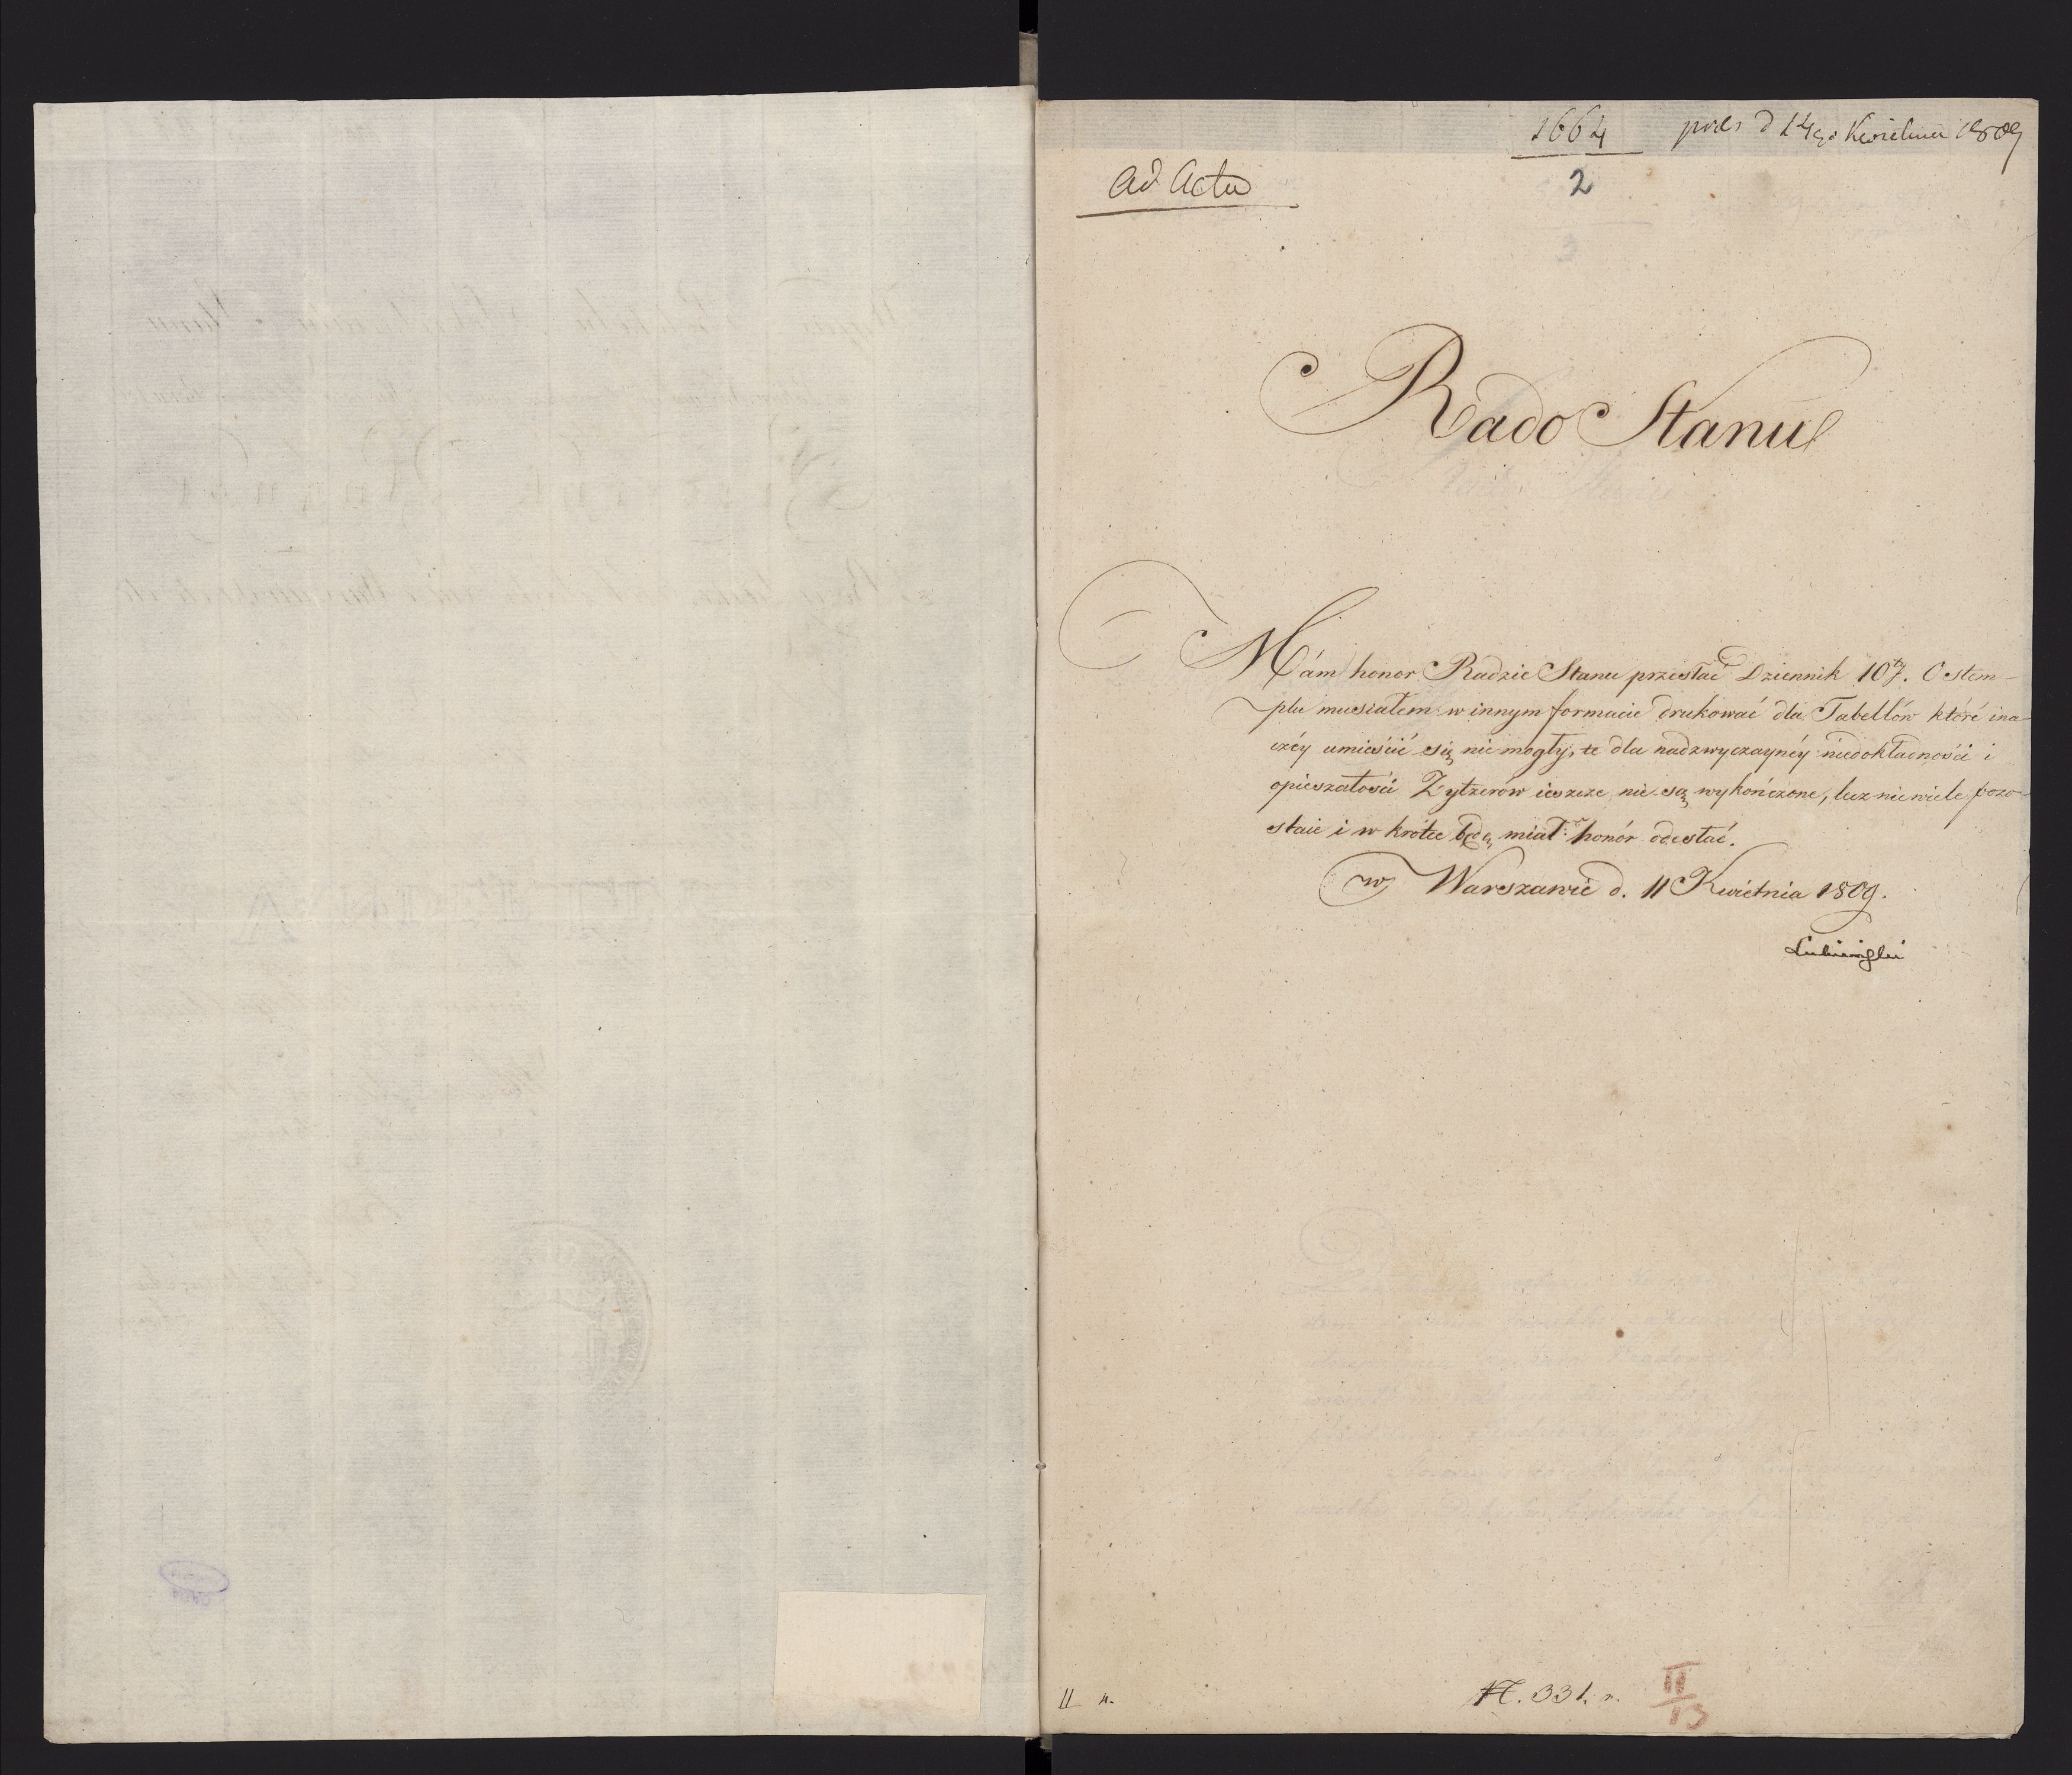 1664 pres d 14go Kwietnia 1809
ad acta
2
Rado Stanu
Mám honor Radzie Stanu przesłać Dziennik 10ty. O stem-
plu musiałem w innym formacie drukować dla Tabellów któré ina-
czéy umieścić się nie mogły, te dla nadzwyczaynéy niedokładności i
opieszałości Zytzerów ieszcze nie są wykończone, lecz nie wiele pozo-
staie i w krótce będę miał honór odesłać.
w Warszawie d. 11 Kwietnia 1809.
II
N. 331.
II
13